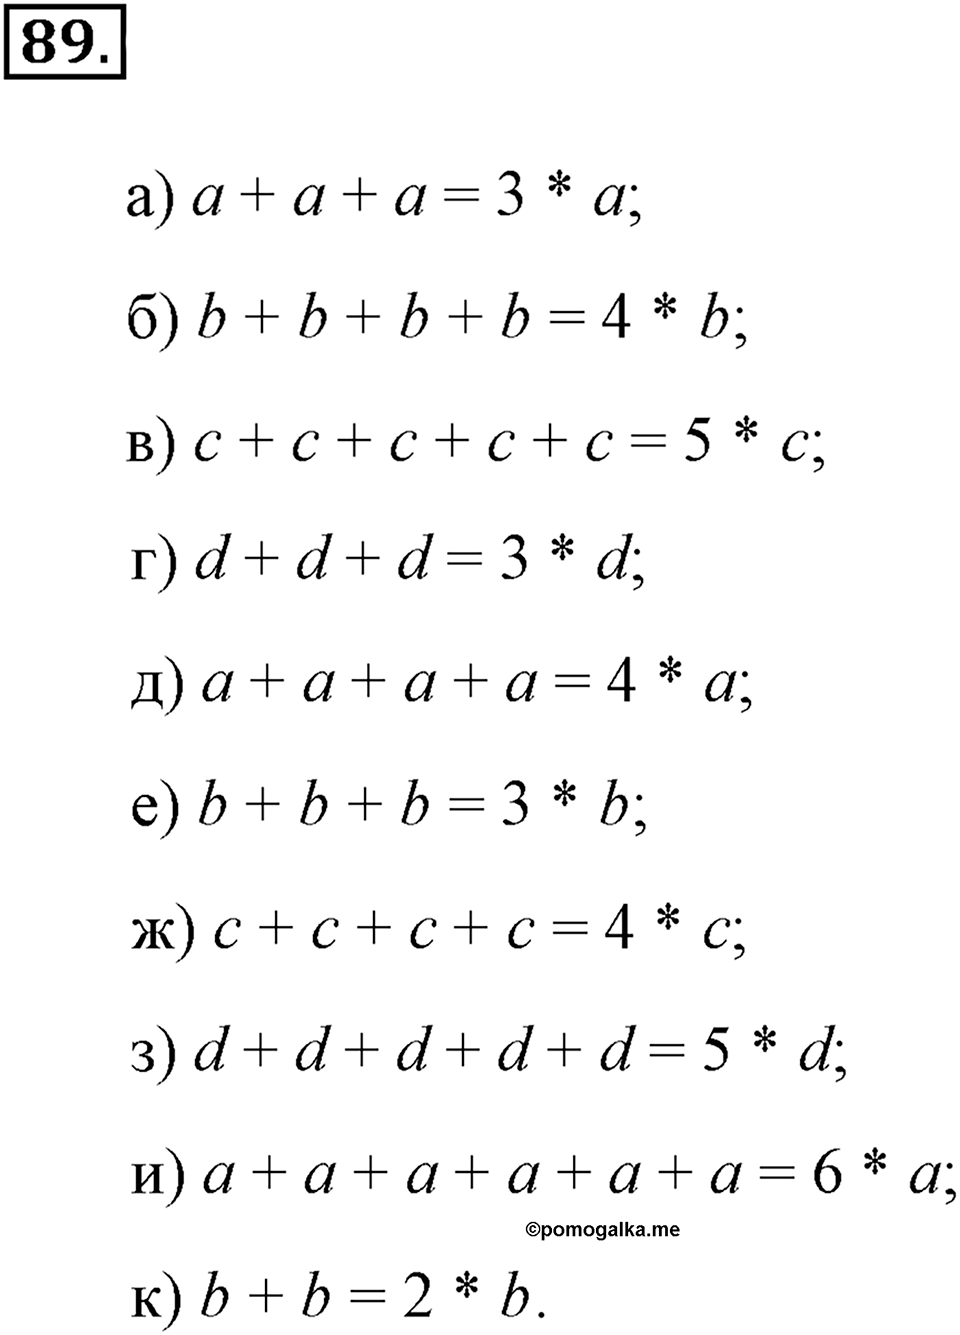 89.
а) a + a + a = 3 * a;
б) b + b + b + b = 4 * b;
в) c + c + c + c + c = 5 * c;
г) d + d + d = 3 * d;
д) a + a + a + a = 4 * a;
е) b + b + b = 3 * b;
ж) c + c + c + c = 4 * c;
з) d + d + d + d + d = 5 * d;
и) a + a + a + a + a + a = 6 * a;
©pomogalka.me
к) b + b = 2 * b.